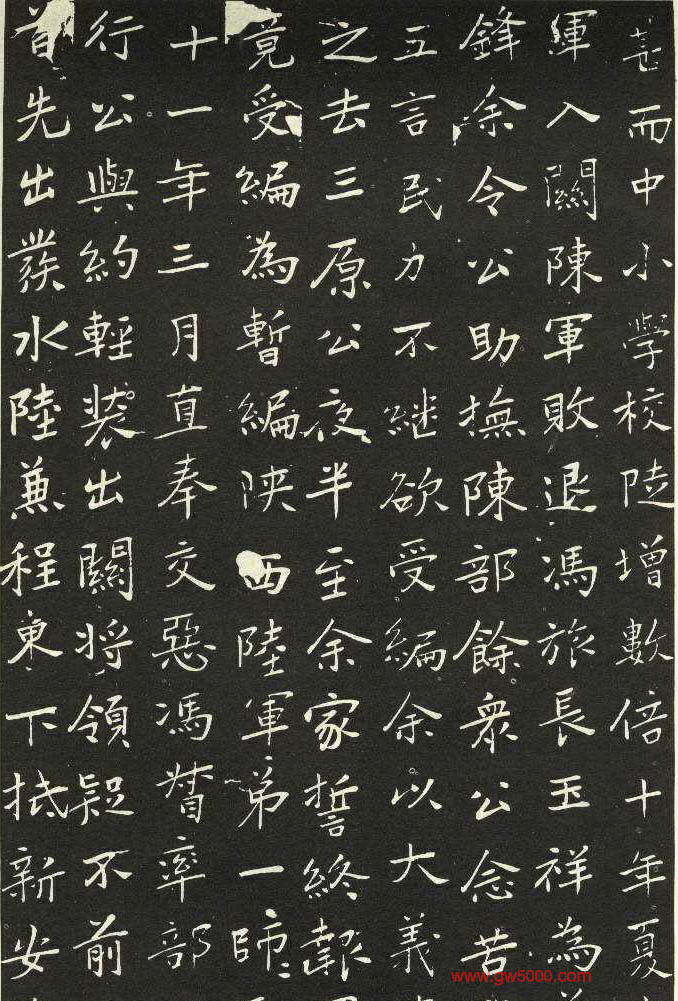 而中小學校陡增數倍十年夏
入關陳軍敗退馮旅長玉祥為
鋒余令公助撫陳部餘衆公念苦
五言民力不継欲受編余以大義
之去三原公夜半至余家誓終報
竟受編為暫編陝西陸軍弟一師
十一年三月直奉交惡馮督率部
行公與約輕装出關将領疑不前
首先出發水陸兼程東下抵新安
www.gw5000.com